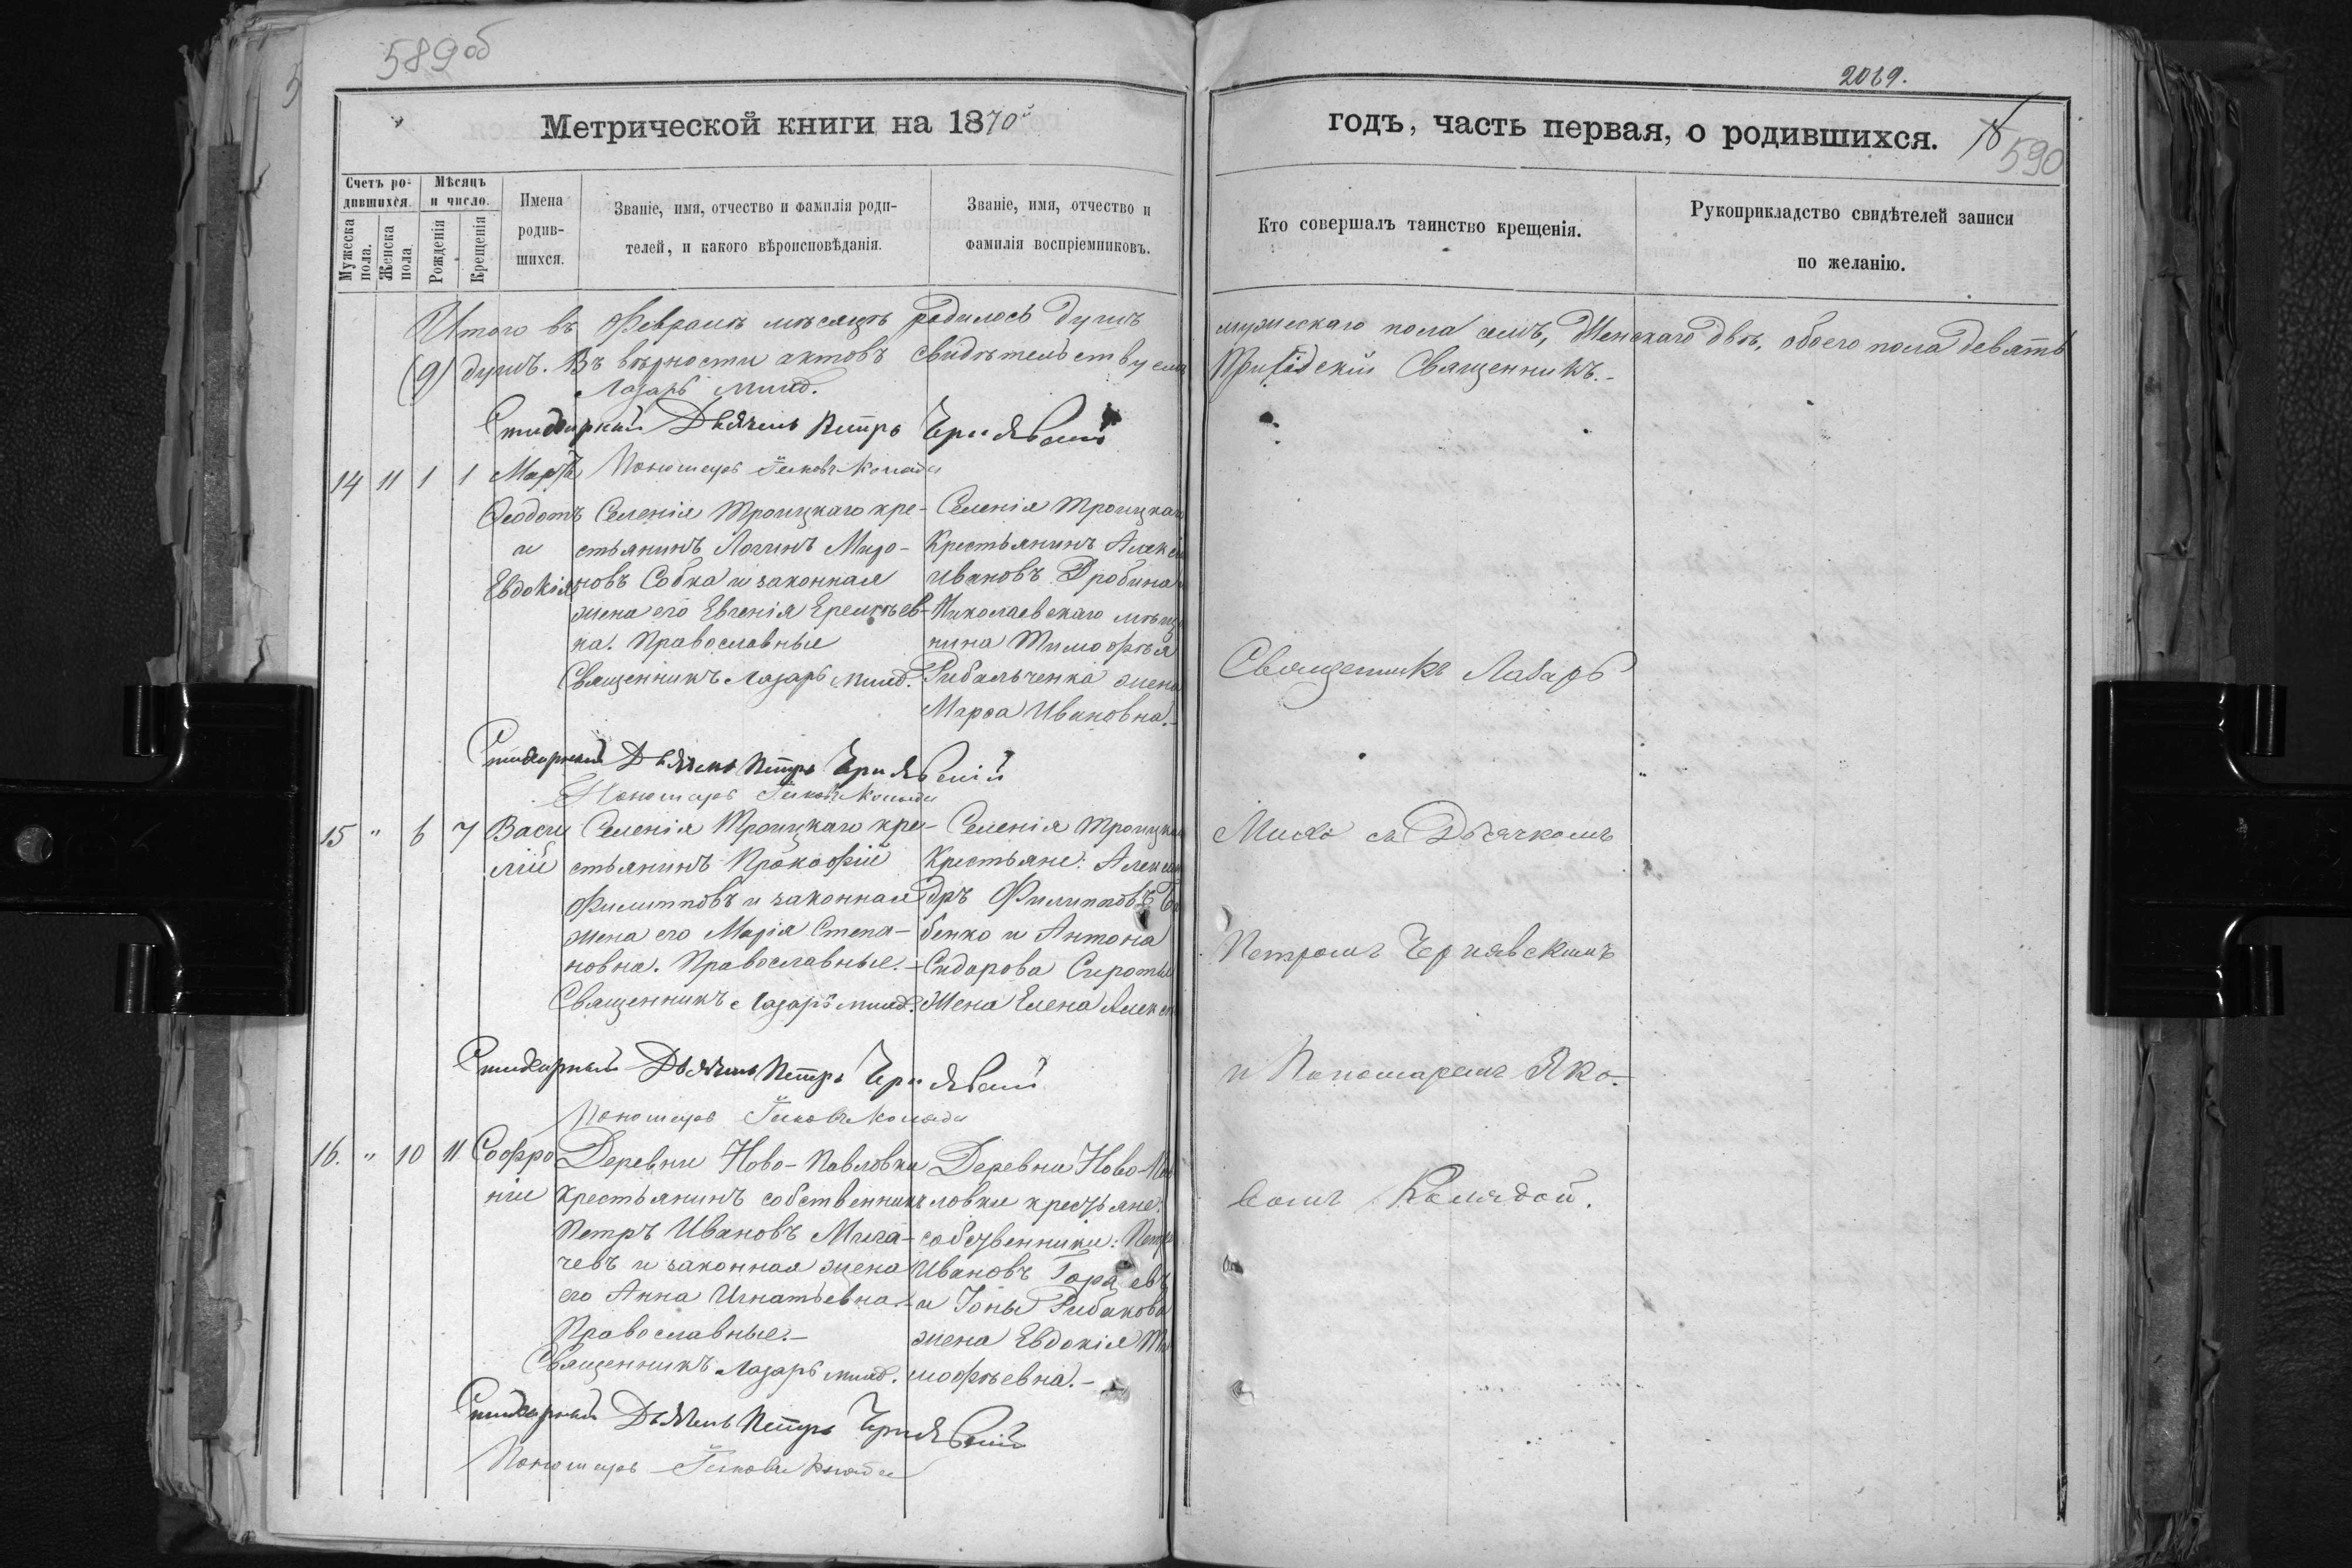 589об
2089.
Метрической книги на 1870й
годъ, часть первая, о родившихся.
590
Счетъ ро-
дившихся.
Мѣсяцъ
и число.
Мужеска
пола.
Женска
пола
Рожденія
Крещенія
Имена
родив-
шихся.
Званіе, имя, отчество и фамилія роди-
телей, и какого вѣроисповѣданія.
Званіе, имя, отчество и
фамилія воспріемниковъ.
Кто совершалъ таинство крещенія.
Рукоприкладство свидѣтелей записи
по желанію.
Итого въ Февралѣ мѣсяцѣ родилось душъ
мужескаго пола семь, Женскаго двѣ, обоего пола девять
(9) душъ. Въ вѣрности актовъ свидѣтельствуемъ
Приходскій Священникъ.-
Лазарь
Стихарный Дьячекъ Петръ Чернявскій
Пономарь Іяковъ Коляда
14 11 1 1 Мартъ
Ѳеодотъ
и
Евдокія
Селенія Троицкаго кре-
стьянинъ Логинъ Миро-
новъ Собка и законная
жена его Евгенія Еремѣев-
на. Православные
Священникъ Лазарь
Селенія Троицкаго
Крестьянинъ Алексѣй
Ивановъ Дробина
Николаевскаго мѣща
нина Тимоѳѣя
Рибальченка жена
Марѳа Ивановна.-
Священникъ Лазарь
Стихарный Дьячекъ Петръ Чернявскій
Пономарь Іяковъ Коляда
15 " 6 7
Васи
лій
Селенія Троицкаго кре-
стьянинъ Прокофій
Филипповъ и законная
жена его Марія Степа-
новна. Православные.-
Священникъ Лазарь
Селенія Троицкаго
Крестьяне: Алексан
дръ Филипповъ
бенко и Антона
Сидарова Сироты
Жена Елена
съ Дьячкомъ
Петромъ Чернявскимъ
Стихарный Дьячекъ Петръ Чернявскій
и Пономаремъ Яко-
Пономарь Іяковъ Коляда
16. " 10 11
Софро
ній
Деревни Ново-Павловки
крестьянинъ собственникъ
Петръ Ивановъ Мига-
чевъ и законная жена
его Анна Игнатьевна.-
Православные.-
Священникъ Лазарь
Деревни Ново-Пав
ловки крестьяне:
собственники: Петръ
Ивановъ
и Іоны Рибакова
жена Евдокія Ти
моѳѣевна.-
вомъ Колядой.
Стихарный Дьячекъ Петръ Чернявскій
Пономарь Іяковъ Коляда